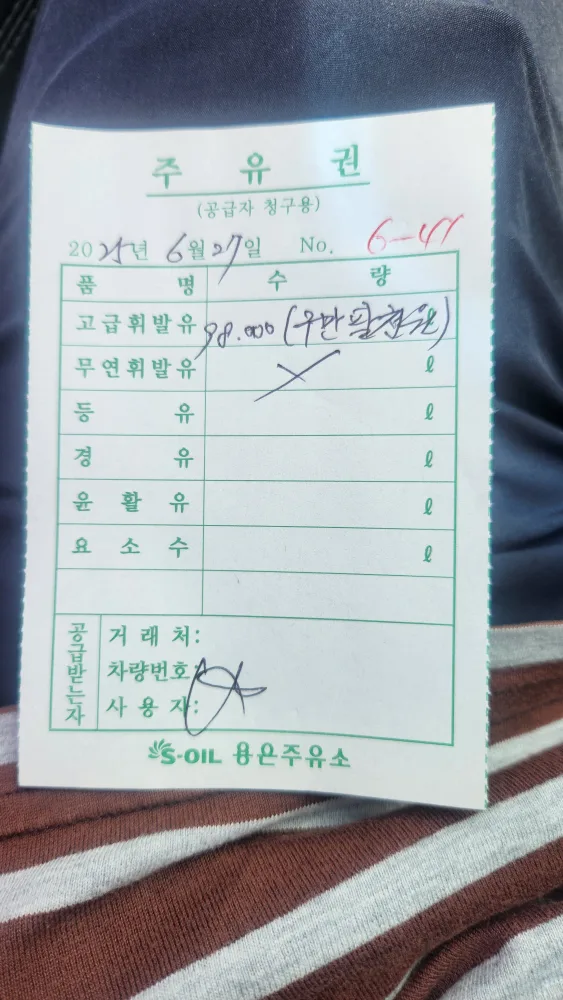 주 유 권
(공급자 청구용)
2025년 6월 27일 No. 6-41
품 명 수 량
고급휘발유 98.000 (구만 팔천원)
무연휘발유 ℓ
등 유 ℓ
경 유 ℓ
윤 활 유 ℓ
요 소 수 ℓ
공급받는자
거 래 처:
차량번호:
사 용 자:
S-OIL 용운주유소